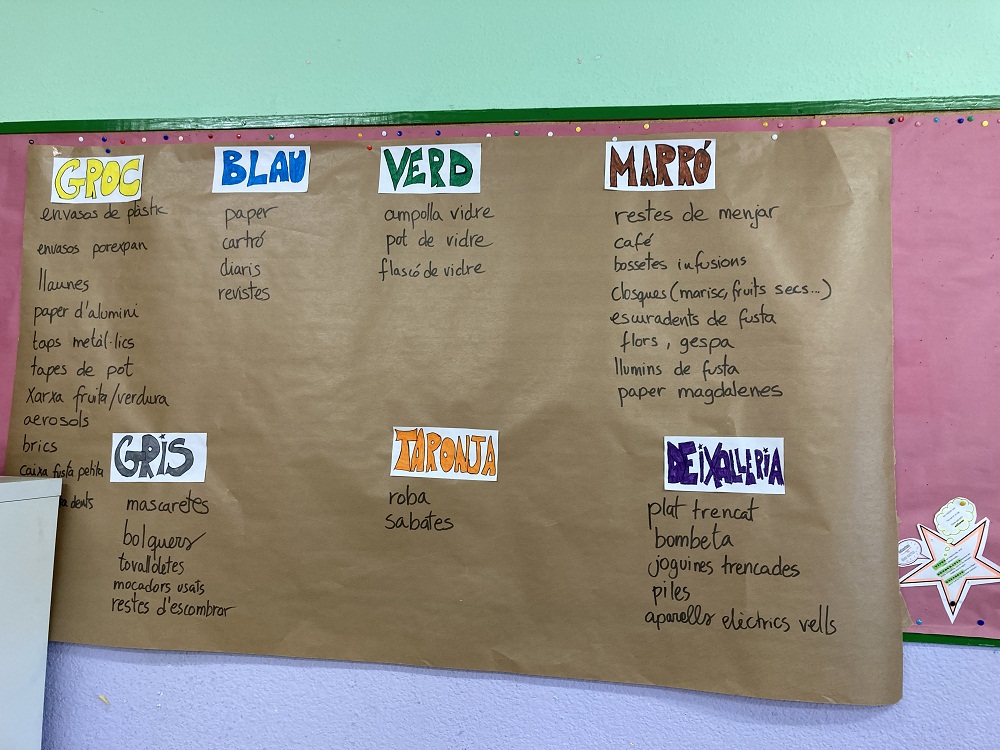 GROC
envasos de plàstic
envasos porexpan
llaunes
paper d'alumini
taps metàl·lics
tapes de pot
xarxa fruita/verdura
aerosols
brics
caixa fusta petita
dents
BLAU
paper
cartró
diaris
revistes
VERD
ampolla vidre
pot de vidre
flascó de vidre
MARRÓ
restes de menjar
café
bossetes infusions
closques (marisc, fruits secs...)
escuradents de fusta
flors, gespa
llumins de fusta
paper magdalenes
GRIS
mascaretes
bolquers
tovalloletes
mocadors usats
restes d'escombrar
TARONJA
roba
sabates
DEIXALLERIA
plat trencat
bombeta
joguines trencades
piles
aparells elèctrics vells